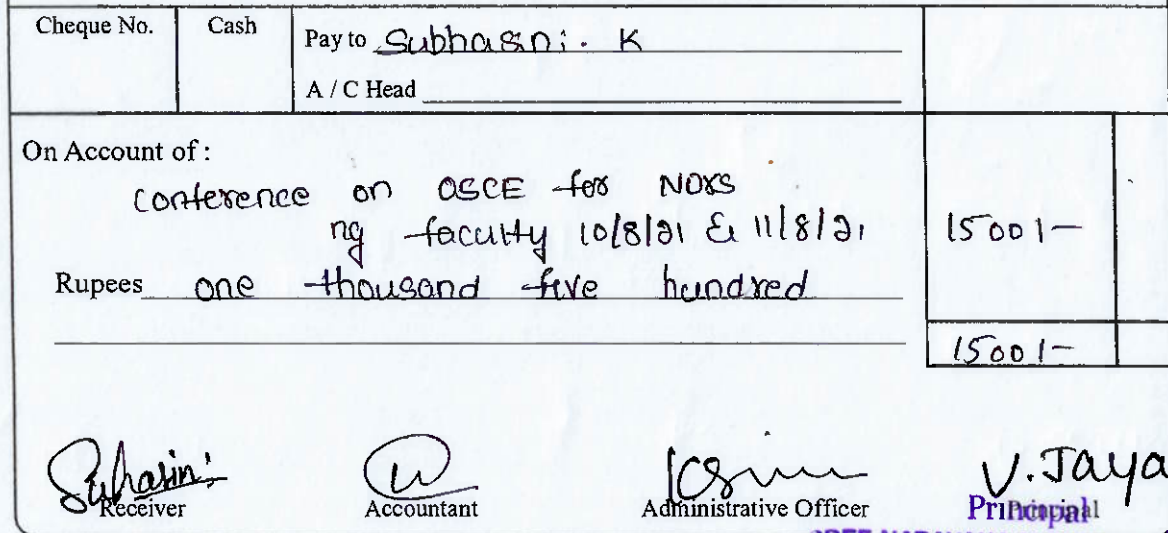 Cheque No. Cash Pay to Subhasni. K
A / C Head
On Account of :
conference on OSCE for NURS
ng faculty 10/8/21 & 11/8/21 1500/-
Rupees one thousand five hundred
1500/-
Suhasini
Receiver Accountant Administrative Officer V. Jaya
Principal Principal